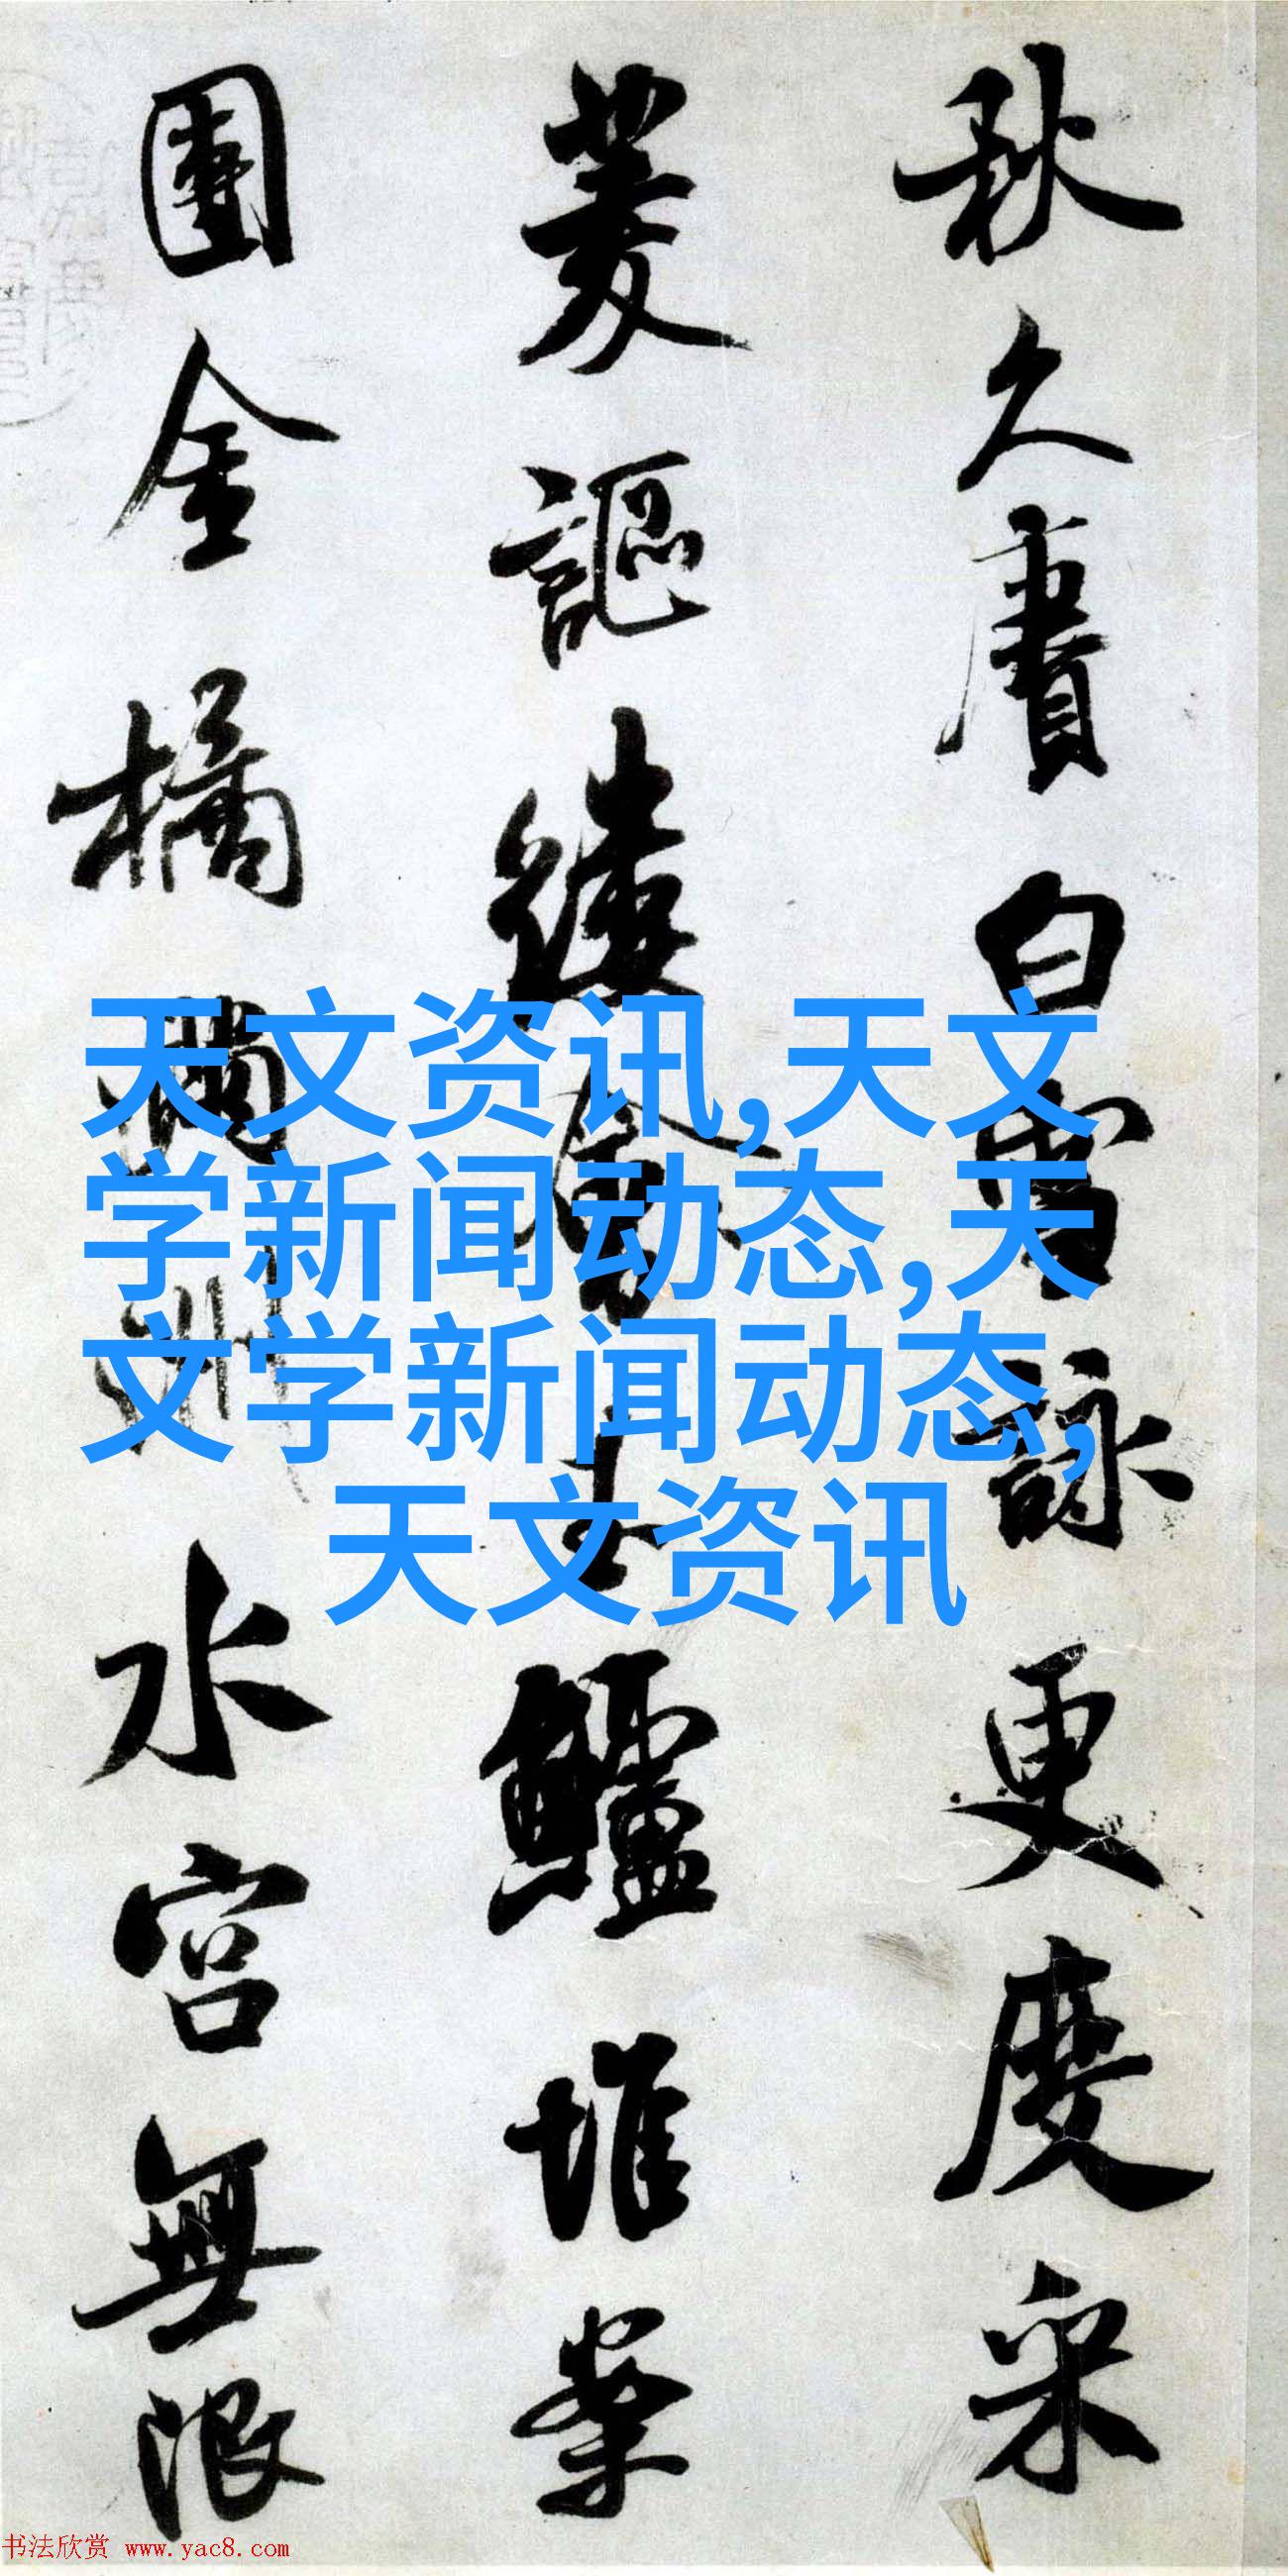 秋久賡白雪詠更度采
菱謳縷會玉鱸堆案
團金橘滿洲水宮無限
天文资讯,天文
学新闻动态,天
文学新闻动态,
天文资讯
书法欣赏 www.yac8.com